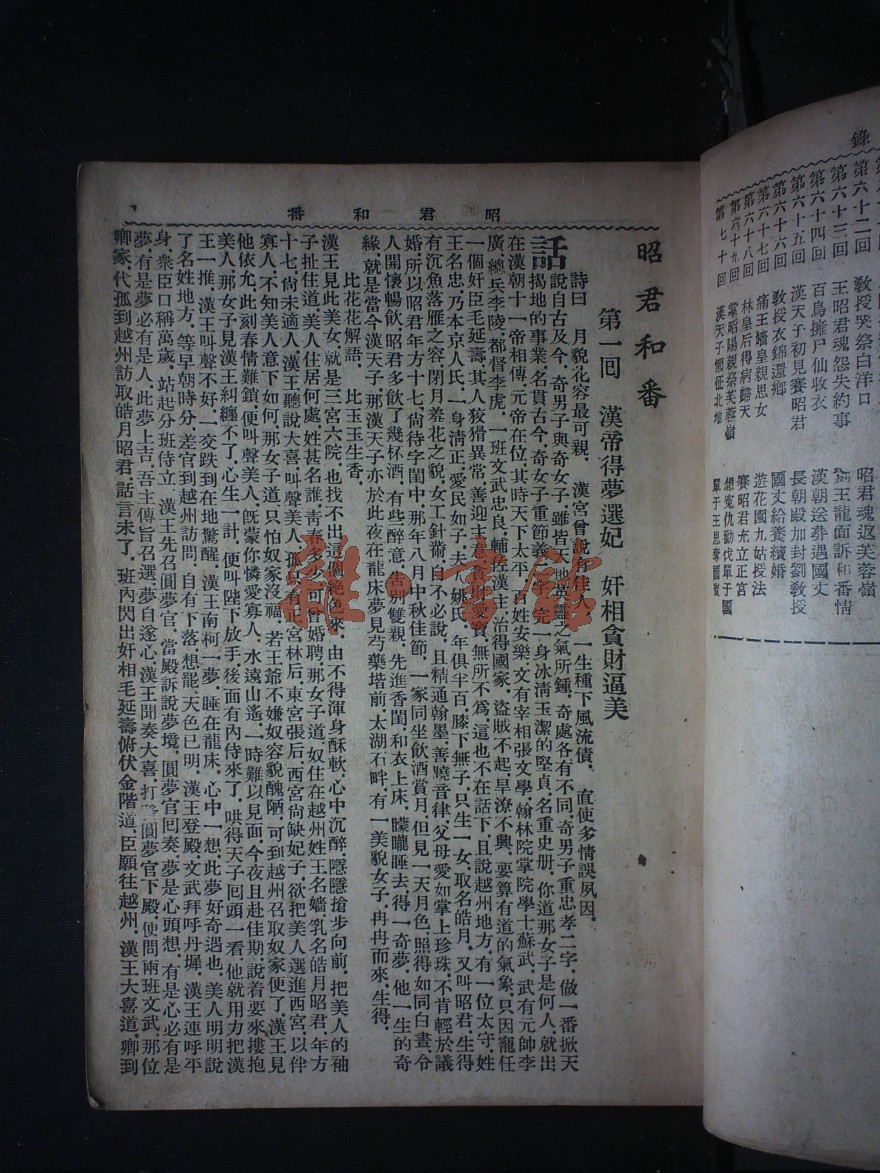 錄
第六十二回　教授哭祭白洋口　昭君魂返芙蓉嶺
第六十三回　王昭君魂怨失約事　劉王龍面訴和番情
第六十四回　百鳥擁尸仙收衣　漢朝送葬遇國丈
第六十五回　漢天子初見賽昭君　長朝殿加封劉教授
第六十六回　教授衣錦還鄉　國丈給養續婚
第六十七回　痛王嬙皇親思女　遊花園九姑授法
第六十八回　林皇后得病歸天　賽昭君充立正宮
第六十九回　掌昭陽親祭芙蓉嶺　想寃仇勸伐單于國
第七十回　漢天子御征北地　單于王思奪國寶
昭君和番
昭君和番
第一回　漢帝得夢選妃　奸相貪財逼美
詩曰　月貌花容最可親．漢宮曾說有佳人．一生種下風流債．直使多情誤夙因．
話說自古及今．奇男子與奇女子．雖皆天地英靈之氣所鍾．奇處各有不同．奇男子重忠孝二字．做一番掀天
揭地的事業．名貫古今．奇女子重節義．完一身冰清玉潔的堅貞．名重史册．你道那女子是何人．就出
在漢朝十一帝相傳．元帝在位．其時天下太平．百姓安樂．文有宰相張文學．翰林院掌院學士蘇武．武有元帥李
廣．總兵李陵．都督李虎．一班文武忠良．輔佐漢主．治得國家．盜賊不起．旱潦不興．要算有道的氣象．只因寵任
一個奸臣毛延壽．其人狡猾異常．善迎主意．貪財愛寶．無所不爲．這也不在話下．且說越州地方．有一位太守．姓
王名忠．乃本京人氏．一身清正．愛民如子．夫人姚氏．年俱半百．膝下無子．只生一女．取名皓月．又叫昭君．生得
有沉魚落雁之容．閉月羞花之貌．女工針黹．自不必說．且精通翰墨．善曉音律．父母愛如掌上珍珠．不肯輕於議
婚．所以昭君年方十七．尙待字閨中．那年八月中秋佳節．一家同坐飮酒賞月．但見一天月色．照得如同白晝．令
人開懷暢飮．昭君多飮了幾杯酒．有些醉意．告別雙親．先進香閨．和衣上床．朦朧睡去．得一奇夢．他一生的奇
緣．就是當今漢天子．那漢天子亦於此夜在龍床夢見芍藥堦前．太湖石畔．有一美貌女子．冉冉而來．生得．
比花花解語．　比玉玉生香．
漢王見此美女．就是三宮六院．也找不出這個絕色來．由不得渾身酥軟．心中沉醉．隱隱搶步向前．把美人的袖
子扯住道．美人住居何處．姓甚名誰．靑春多少．可曾婚聘．那女子道．奴住在越州姓王名嬙．乳名皓月昭君．年方
十七．尙未適人．漢王聽說大喜．叫聲美人．孤只有正宮林后．東宮張后．西宮尙缺妃子．欲把美人選進西宮．以伴
寡人．不知美人意下如何．那女子道．只怕奴家沒福．若王爺不嫌奴容貌醜陋．可到越州召取奴家便了．漢王見
他依允．此刻春情難鎖．便叫聲美人．既蒙你憐愛寡人．水遠山遙．一時難以見面．今夜且赴佳期．說着要來摟抱
美人．那女子見漢王糾纏不了．心生一計．便叫陛下放手．後面有內侍來了．哄得天子囘頭一看．他就用力把漢
王一推．漢王叫聲不好．一交跌到在地驚醒．漢王南柯一夢．睡在龍床．心中一想．此夢好奇遇也．美人明明說
了名姓地方．等早朝時分．差官到越州訪問．自有下落．想罷．天色已明．漢王登殿．文武拜呼丹墀．漢王連呼平
身．衆臣口稱萬歲．站起分班侍立．漢王先召圓夢官．當殿訴說夢境．圓夢官囘奏．夢是心頭想．有是心必有是
夢．有是夢必有是人．此夢上吉．吾主傳旨召選．夢自遂心．漢王聞奏大喜．打發圓夢官下殿．便問兩班文武．那位
卿家．代孤到越州訪取皓月昭君．話言未了．班內閃出奸相毛延壽俯伏金階道．臣願往越州．漢王大喜道．卿到
雜·書館